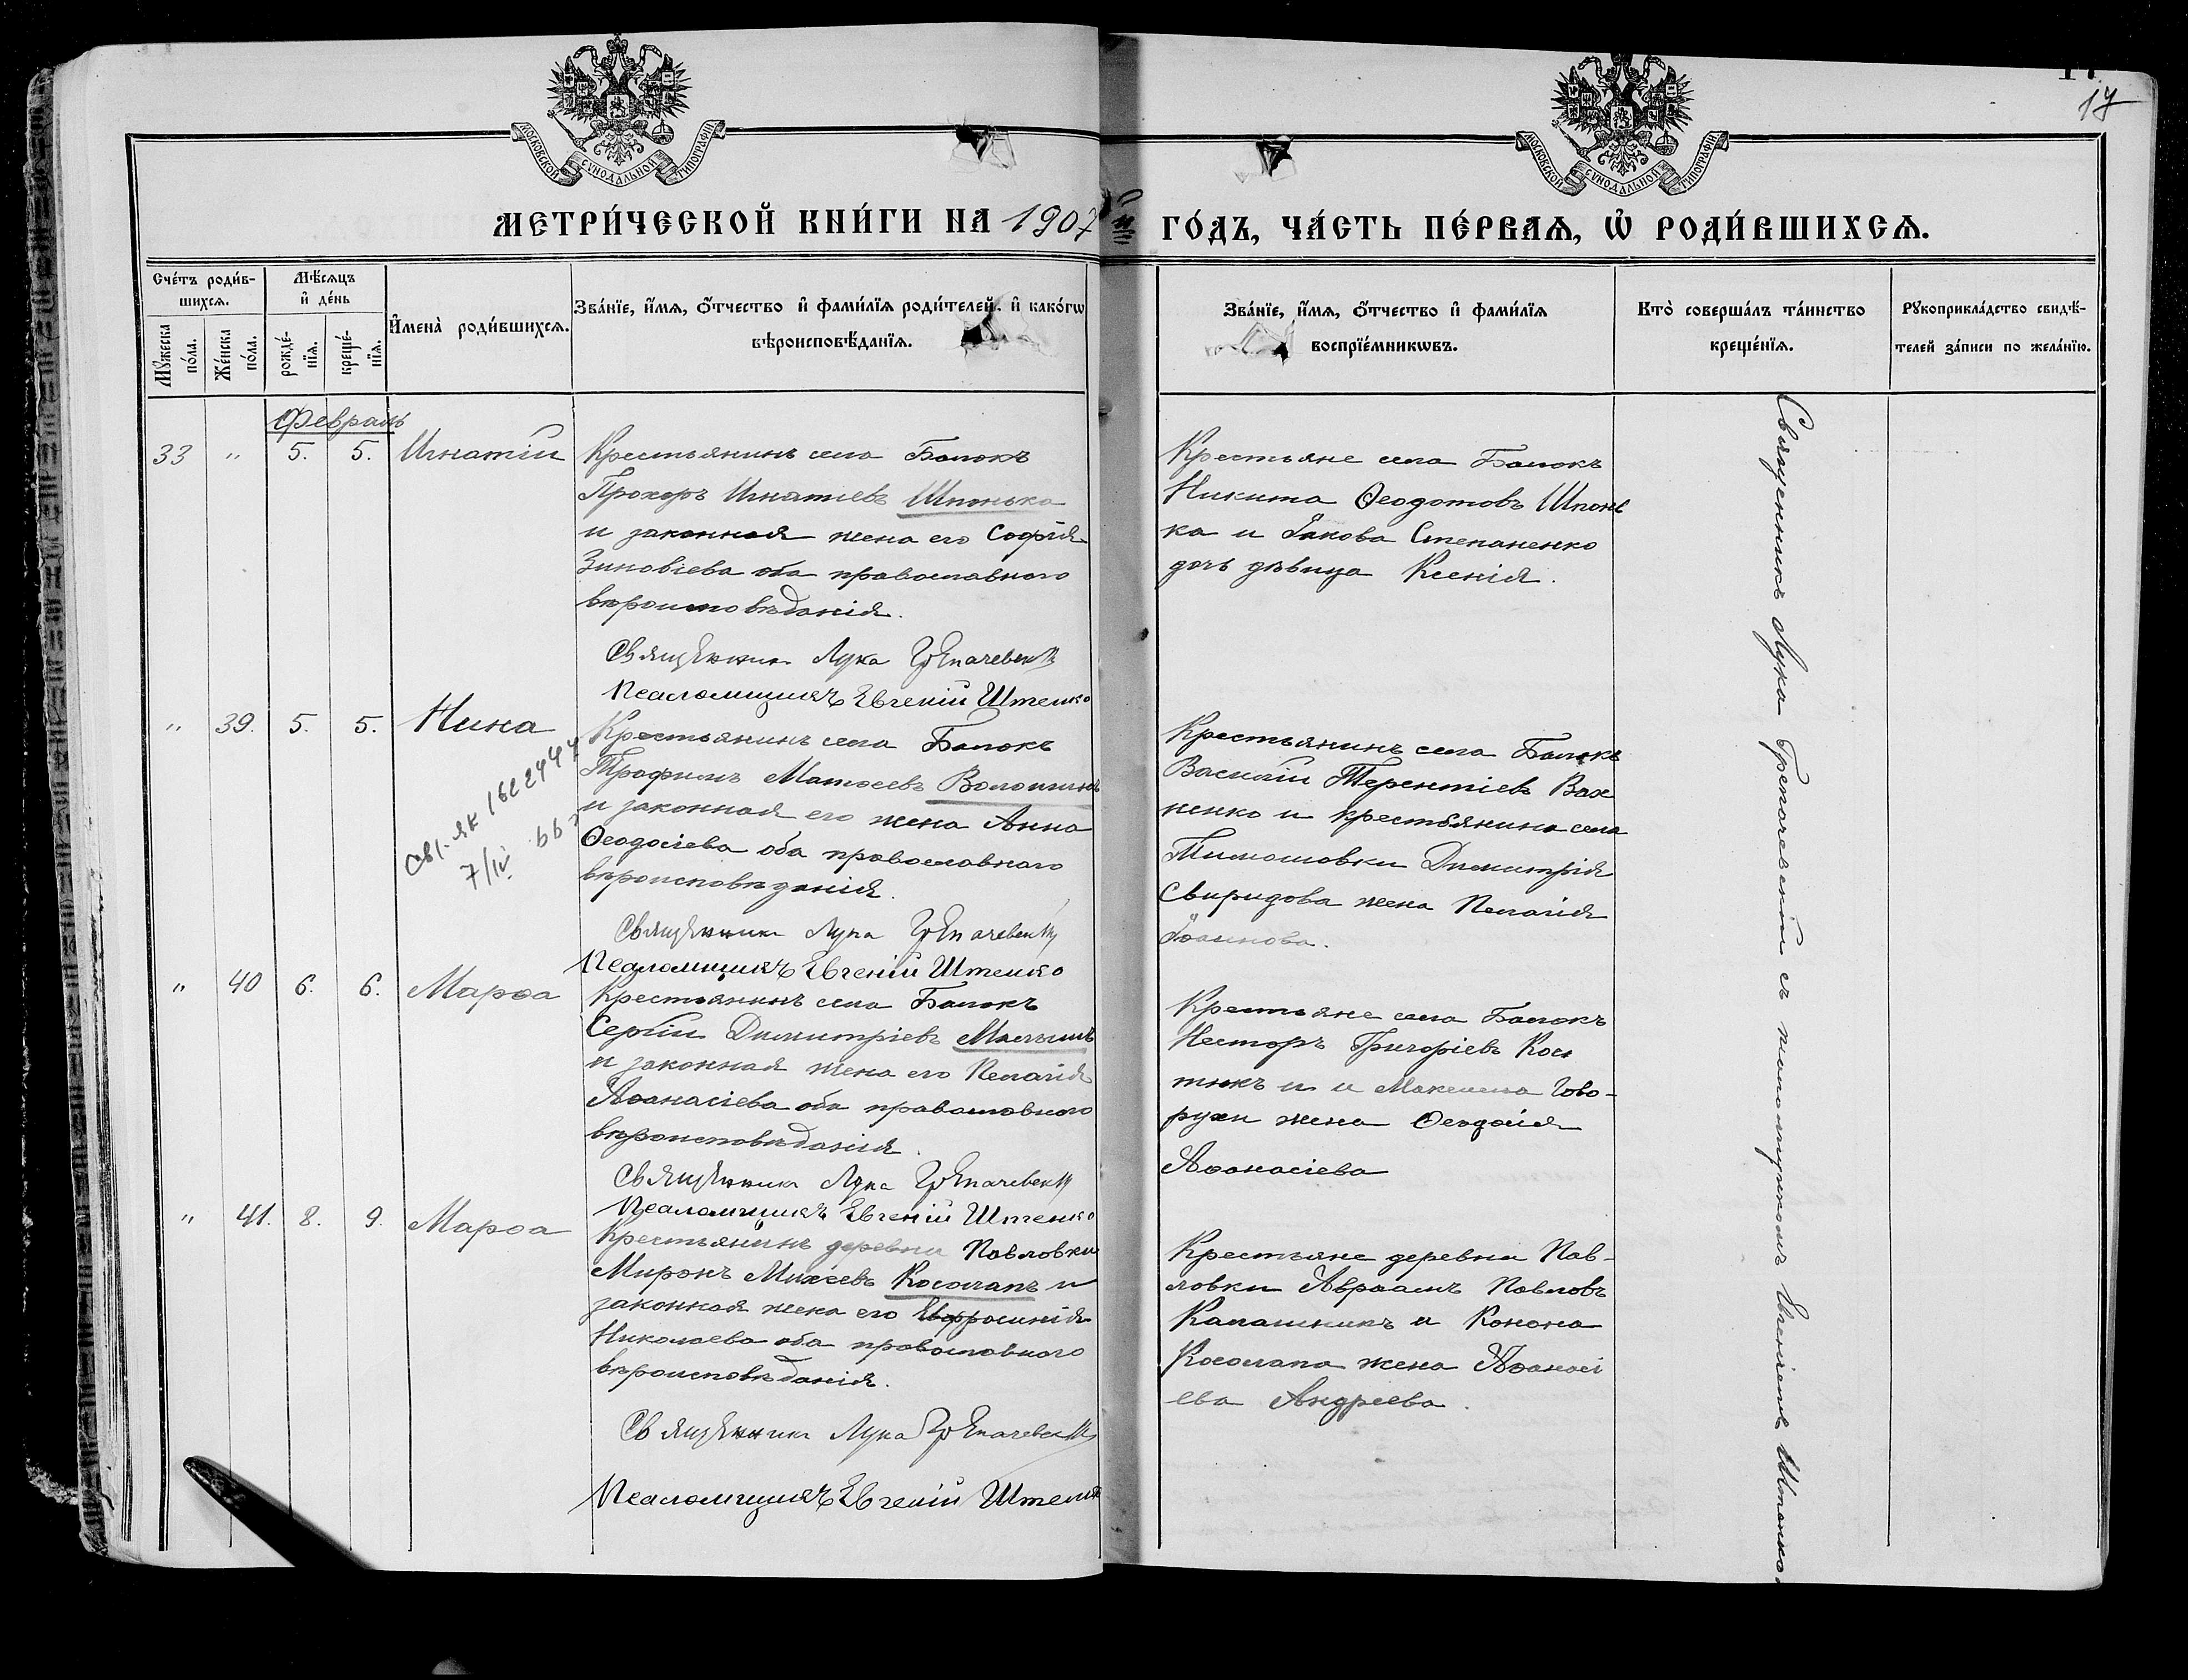 17
МОСКОВСКОЙ СѴНОДАЛЬНОЙ ТИПОГРАФІИ
МОСКОВСКОЙ СѴНОДАЛЬНОЙ ТИПОГРАФІИ
МЕТРИ́ЧЕСКОЙ КНИ́ГИ НА 1907й ГО́ДЪ, ЧА́СТЬ ПЕ́РВАѦ, Ѡ҆ РОДИ́ВШИХСѦ.
Сче́тъ роди́в-
шихсѧ.
Мꙋжеска
по́ла.
Же́нска
по́ла.
Мѣ́сѧцъ
и҆ де́нь
рожде́-
нїѧ.
креще́-
нїѧ.
И҆мена̀ роди́вшихсѧ.
Зва́нїе, и҆́мѧ, ѻ҆́тчество и҆ фами́лїѧ роди́телей, и҆ како́гѡ
вѣроисповѣ́данїѧ.
Зва́нїе, и҆́мѧ, ѻ҆́тчество и҆ фами́лїѧ
воспрїе́мникѡвъ.
Кто̀ соверша́лъ та́инство
креще́нїѧ.
Рꙋкоприкла́дство свидѣ́-
телей за́писи по жела́нїю.
Февраль
33 " 5. 5. Игнатій
Крестьянинъ села Балокъ
Прохоръ Игнатіевъ Шпонька
и законная жена его Софія
Зиновіева оба православнаго
вѣроисповѣданія.
Священникъ Лука Грепачевскій
Псаломщикъ Евгеній Штенко
Крестьяне села Балокъ
Никита Ѳеодотовъ Шпонь
ка и Іакова Степаненко
дочь дѣвица Ксенія.
" 39. 5. 5. Нина
7/IV
Крестьянинъ села Балокъ
Трофимъ Матѳеевъ Волошинъ
и законная его жена Анна
Ѳеодосіева оба православнаго
вѣроисповѣданія.
Священникъ Лука Грепачевскій
Псаломщикъ Евгеній Штенко
Крестьянинъ села Балокъ
Василій Терентіевъ Вах
ненко и крестьянина села
Тимошовки Димитрія
Свиридова жена Пелагія
Іоаннова.
" 40 6. 6. Марѳа
Крестьянинъ села Балокъ
Сергій Димитріевъ
и законная жена его Пелагія
Аѳанасіева оба православнаго
вѣроисповѣданія.
Священникъ Лука Грепачевскій
Псаломщикъ Евгеній Штенко
Крестьяне села Балокъ
Несторъ Григоріевъ Кос
тюкъ и и Максима Гово-
рухи жена Ѳеодосія
Аѳанасіева
" 41. 8. 9. Марѳа
Крестьянинъ деревни Павловки
Миронъ Михеевъ Косолапъ и
законная жена его Евфросинія
Николаева оба православнаго
вѣроисповѣданія.
Священникъ Лука Грепачевскій
Псаломщикъ Евгеній Штенко
Крестьяне деревни Пав-
ловки Авраамъ Павловъ
Калашникъ и Конона
Косолапа жена Аѳанасі
ева Андреева.
Священникъ Лука Грепачевскій съ псаломщикомъ Евгеніемъ Штенко.